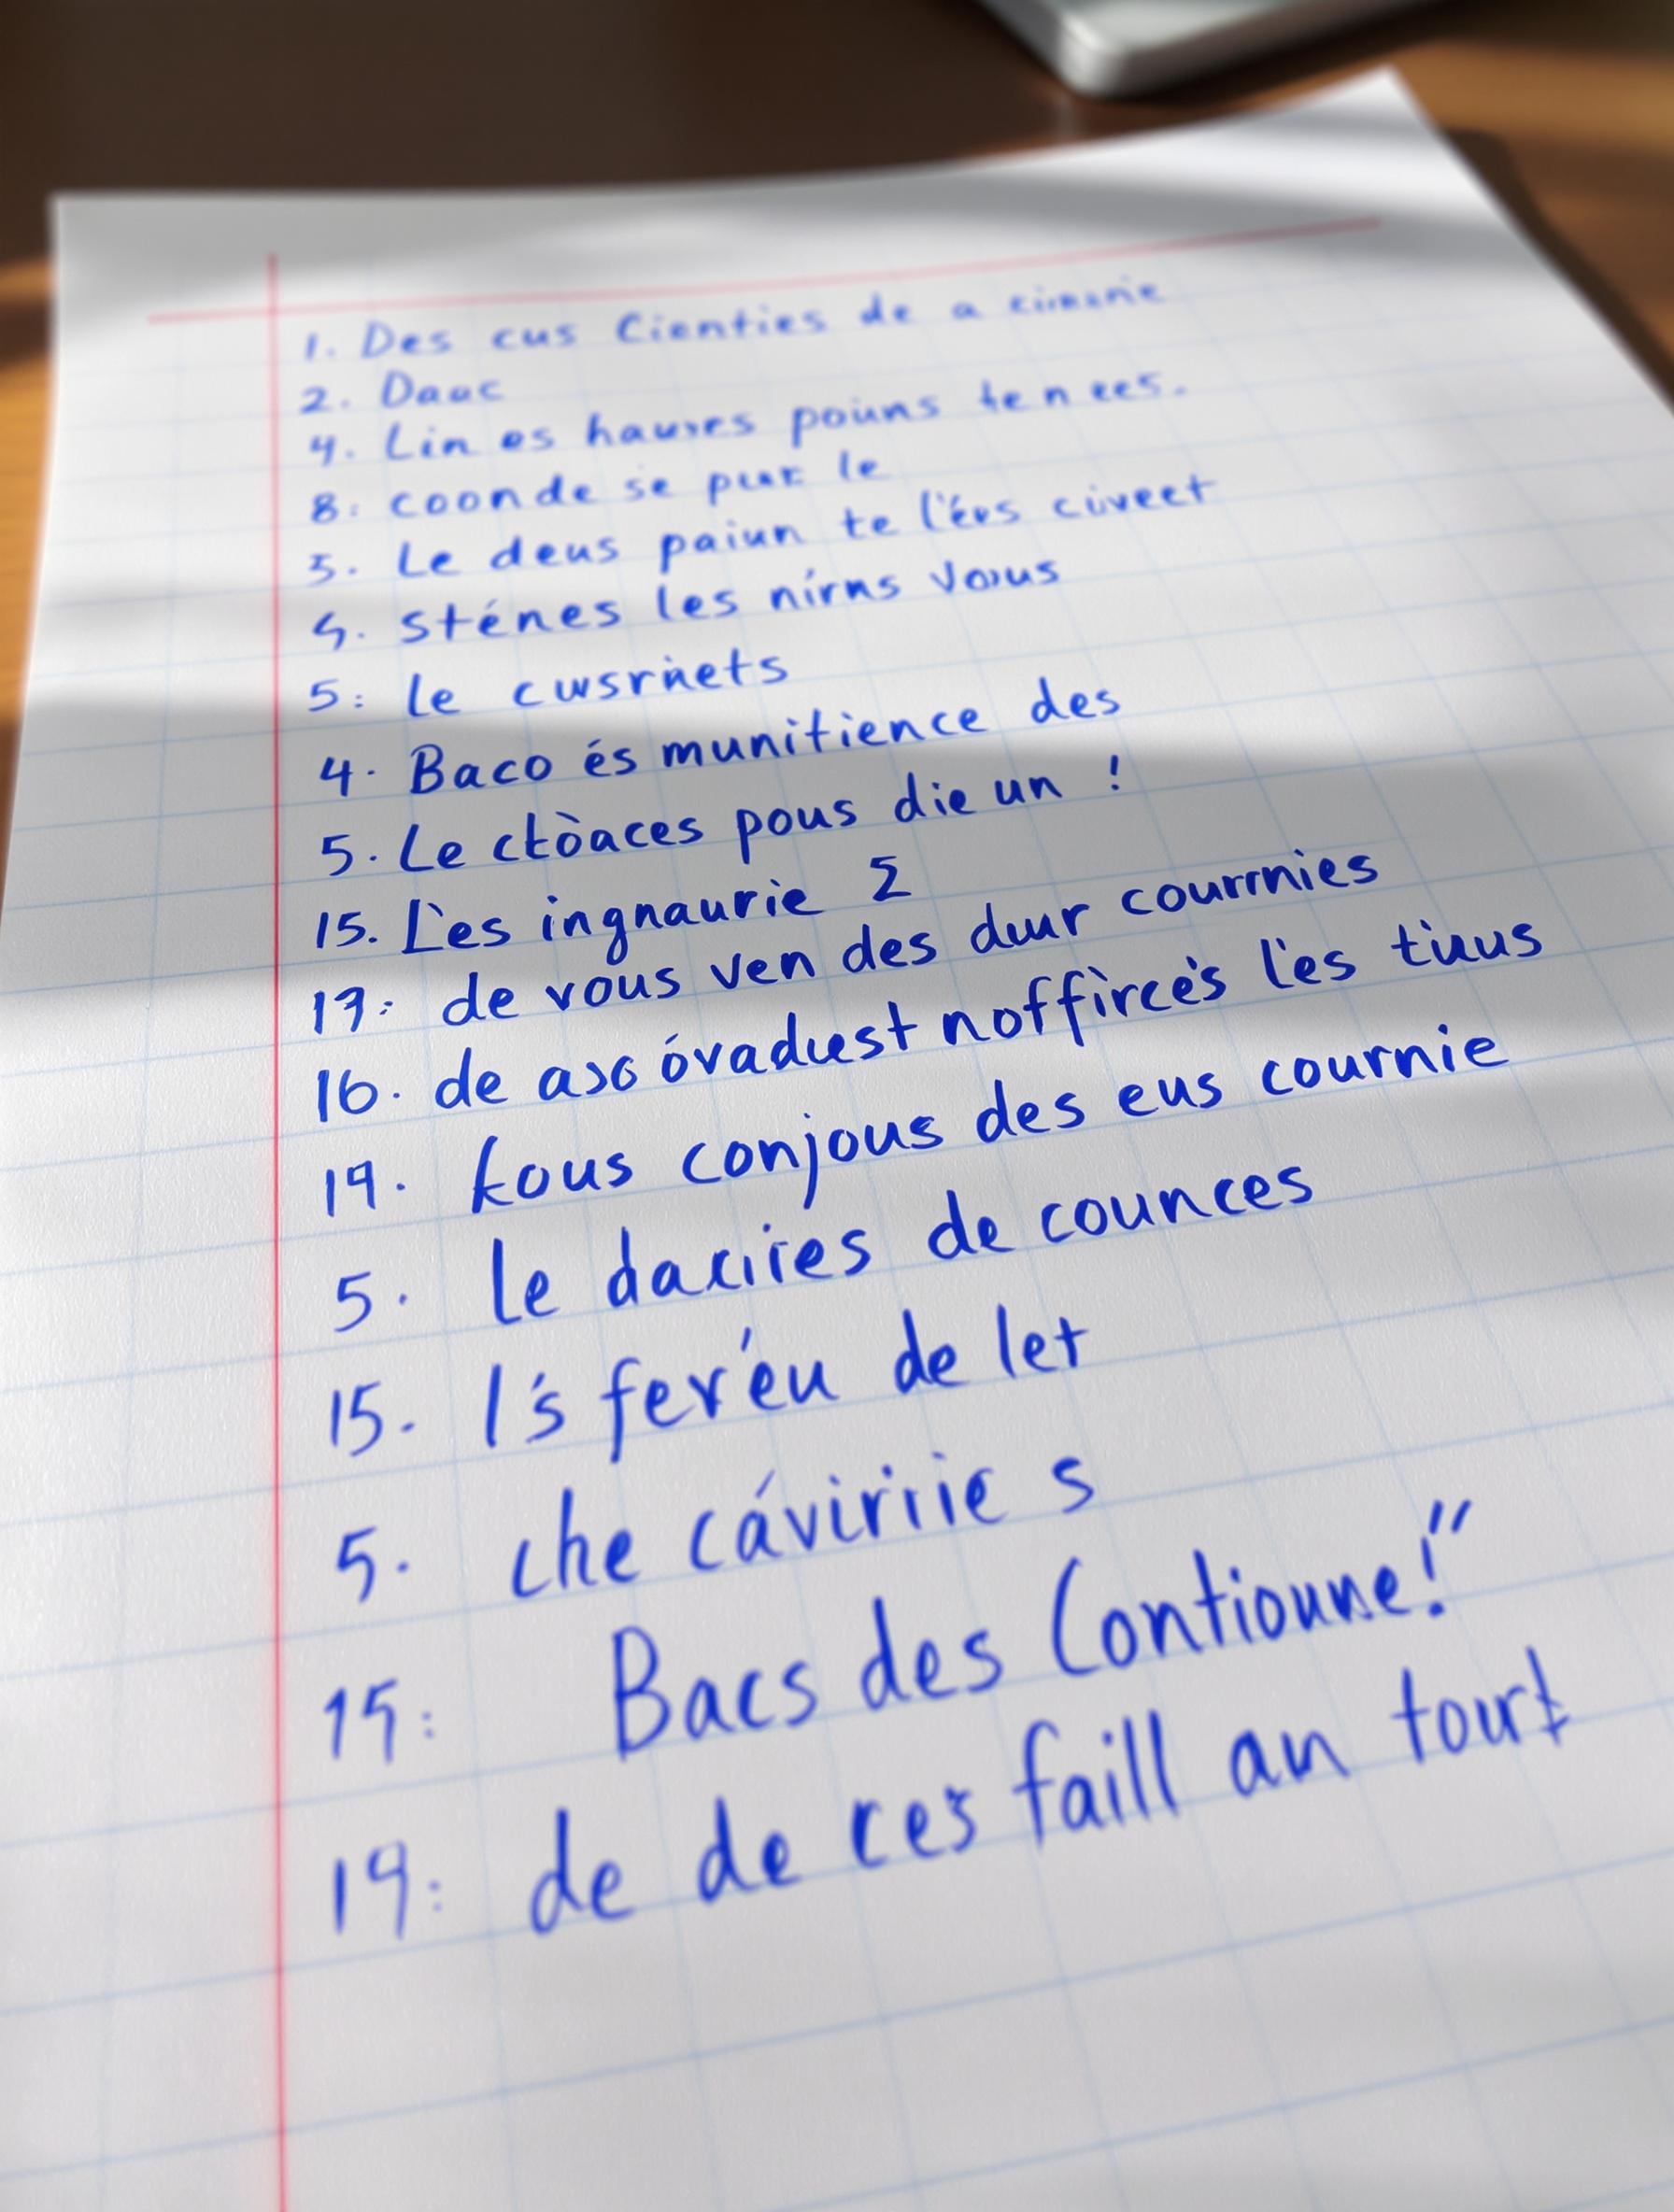 1. Des cus Cienties de a
2. Daac
4. Lin es haures pouns te n ees.
8: coonde se pur le
5. Le deus paiun te l'érs civeet
5. sténes les nírns vous
5: le cwsrnets
4. Baco és munitience des
5. Le ctòaces pous die un !
15. L'es ingnaurie Σ
17: de vous ven des duur courrnies
16. de óvaduest noffircés l'es
19. kous conjous des eus cournie
5. le dacires de counces
15. l's fer'éu de let
5. che cáviriie s
15: Bacs des Contioune!"
19: de de ces faill an tourt